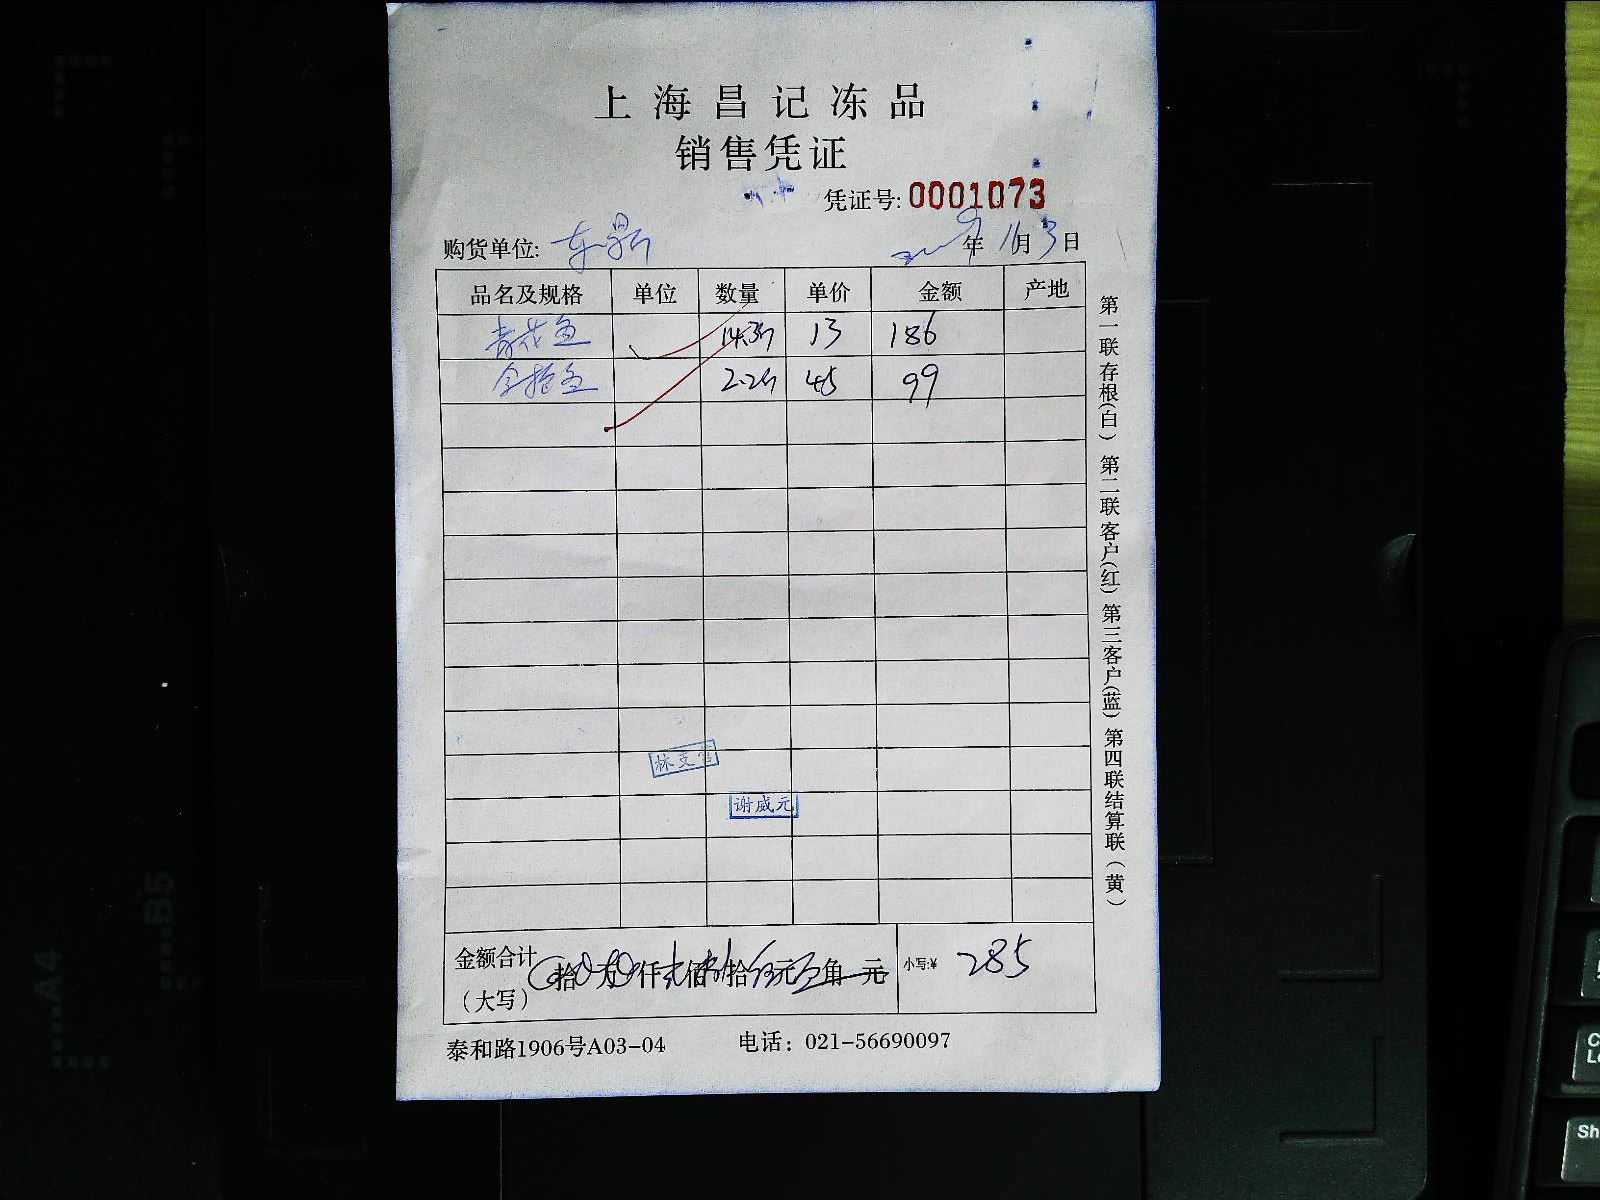 上海昌记冻品
销售凭证
凭证号: 0001073
购货单位: 东鼎 年 11月3日
品名及规格 单位 数量 单价 金额 产地
青花鱼 14.3斤 13 186
金枪鱼 2.2斤 45 99
林支
谢威元
金额合计 拾 万 仟 佰 拾 伍元 角 元 小写:¥ 285
（大写）
泰和路1906号A03-04 电话：021-56690097
第一联存根(白) 第二联客户(红) 第三客户(蓝) 第四联结算联（黄）
A4
B5